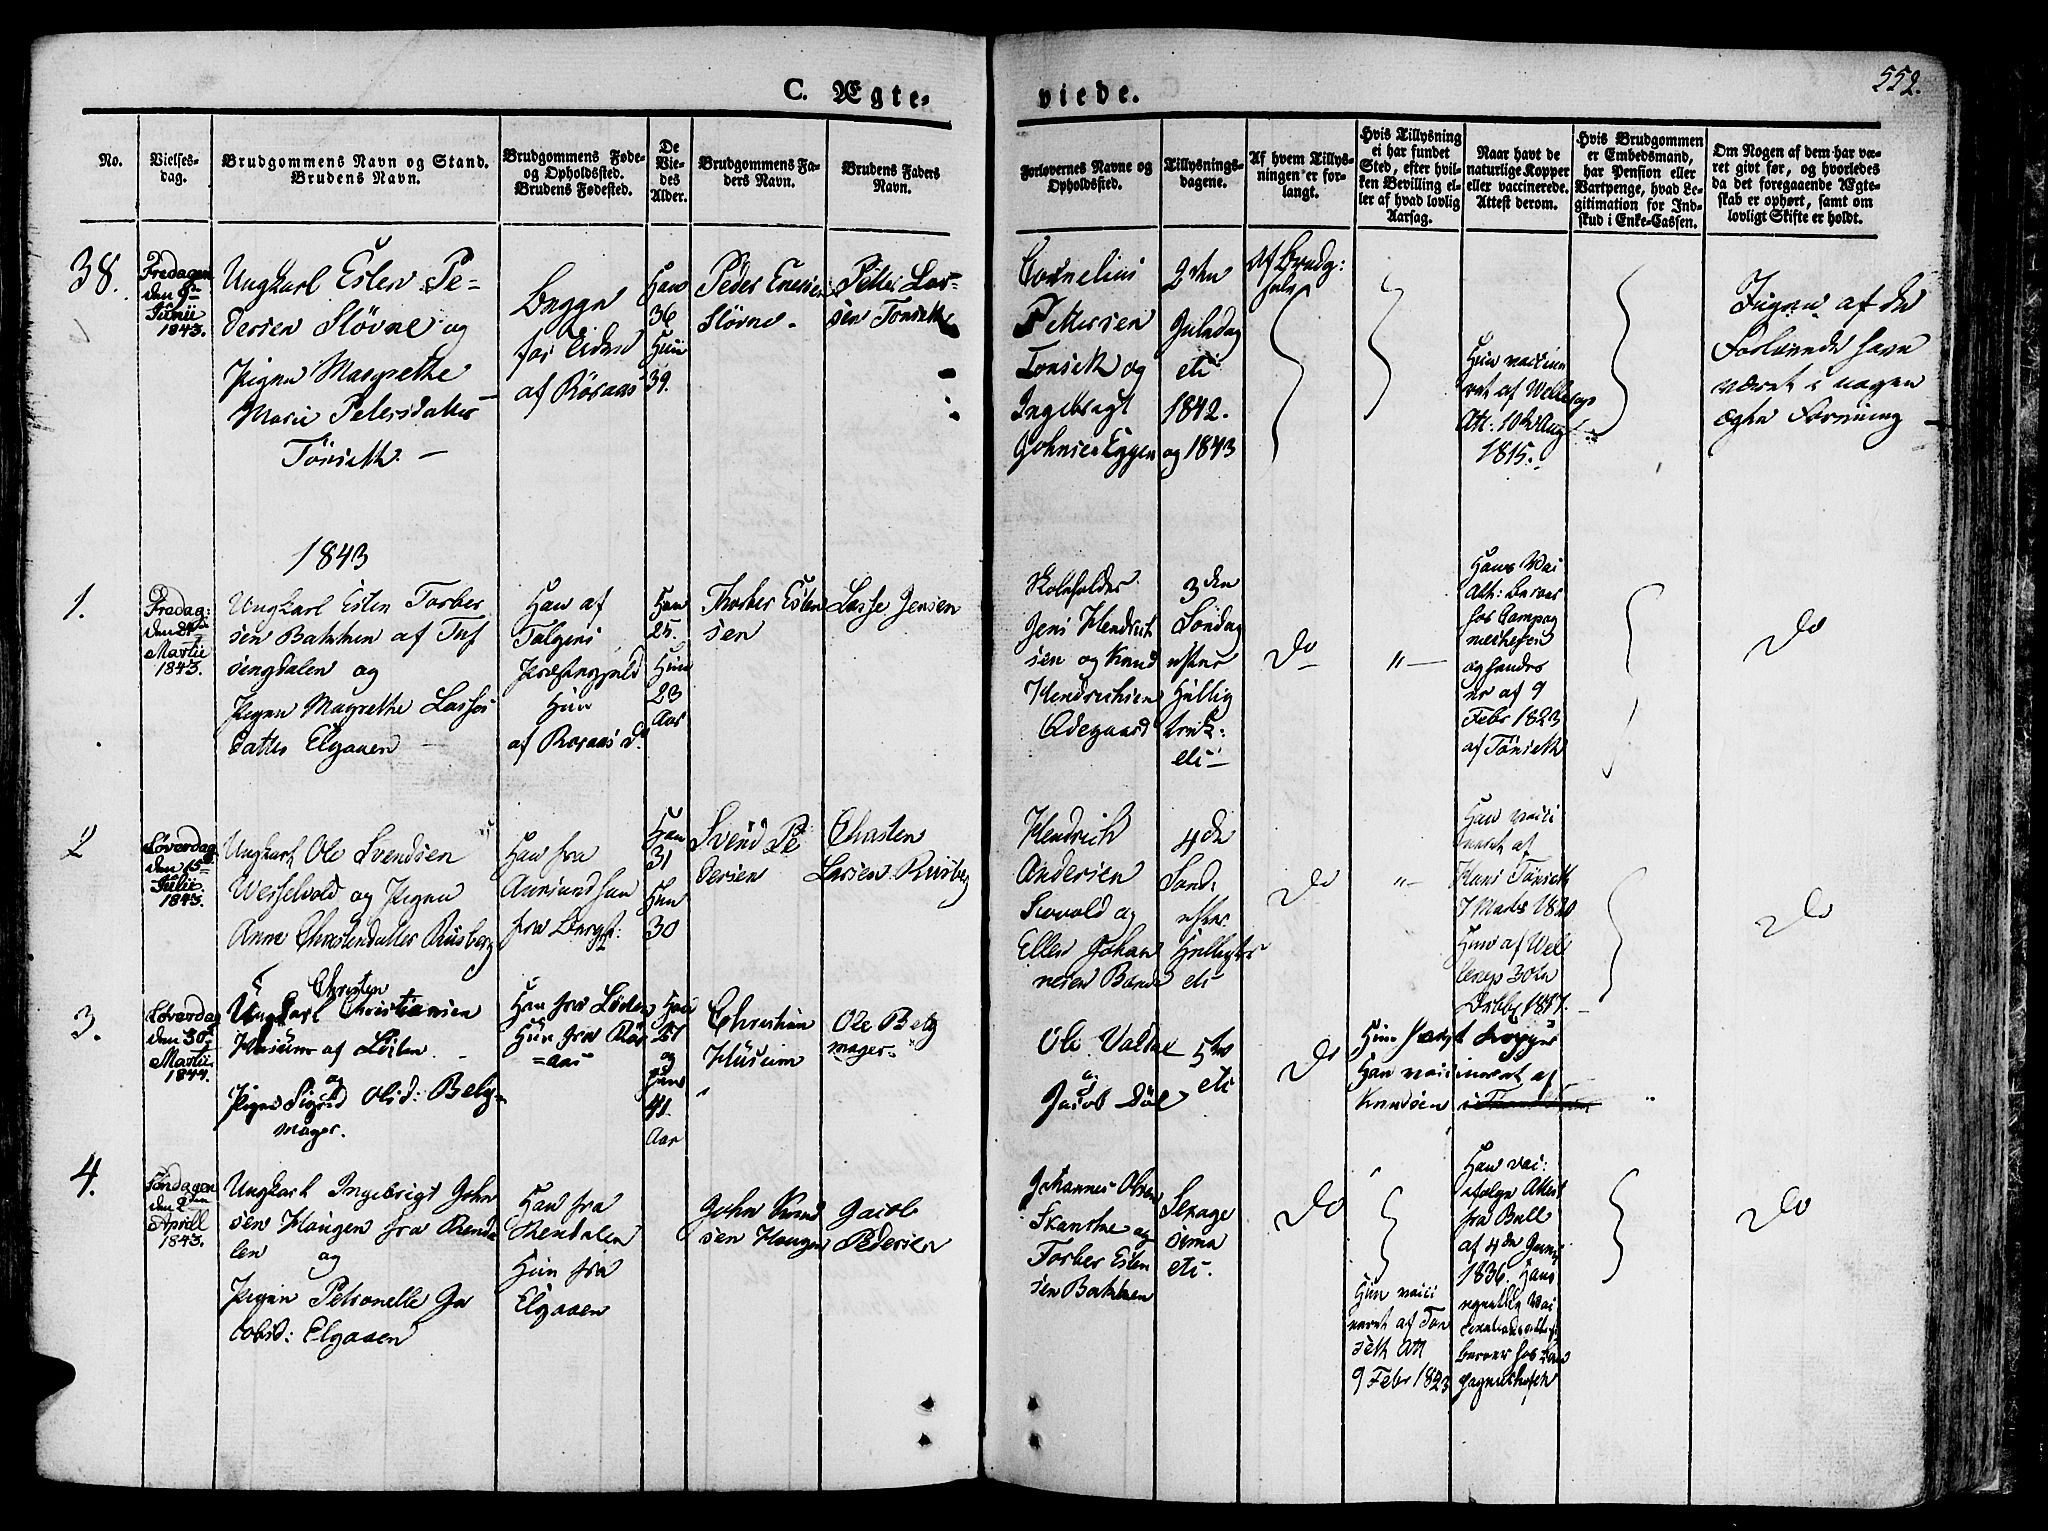 552.
C. Ægte-
viede.
No.
Vielses-
dag.
Brudgommens Navn og Stand.
Brudens Navn.
Brudgommens Føde-
og Opholdssted.
Brudens Fødested.
De
Vie-
des
Alder.
Brudgommens Fa-
ders Navn.
Brudens Faders
Navn.
Forlovernes Navne og
Opholdssted.
Tillysnings-
dagene.
Af hvem Tillys-
ningen er for-
langt.
Hvis Tillysning
ei har fundet
Sted, efter hvil-
ken Bevilling el-
ler af hvad lovlig
Aarsag.
Naar havt de
naturlige Kopper
eller vaccinerede.
Attest derom.
Hvis Brudgommen
er Embedsmand,
har Pension eller
Vartpenge, hvad Le-
gitimation for Ind-
skud i Enke-Cassen.
Om Nogen af dem har væ-
ret givt før, og hvorledes
da det foregaaende Ægte-
skab er ophørt, samt om
lovligt Skifte er holdt.
38.
Fredagen
den
Junii
1843.
Ungkarl Esten Pe-
dersen Sløvne og
Pigen Margrethe
Marie Petersdatter
Tönseth. -
Begge
af Röraas
Han
36
Hun
39.
Peder Enersen
Sløvne -
Petter Lar-
sen Tönseth
Cornelius
Pettersen
Tönseth og
Ingebregt
Johnsen Eggen
2den
Juledag
etc
1842.
og 1843
af Brudg:
Hun vaccine
ret af
Att: 10d Aug
1815.
Ingen af de
Forlovede have
været i nogen
ægte Forening
1843
1.
Fredag:
den 24
Martii
1843.
Ungkarl Esten Torber
sen Bakken af Tuf
singdalen og
Pigen Magrethe Lasses
datter Elgaaen -
Han af
Tolgens
Præstegjeld
Hun
af Roraas
Han
25.
Hun
23
Aar
Thorber Esten
sen
Lasse Jensen
Skoleholder
Jens Hendrick
sen og Knud
Hendrichsen
Ödegaard
3den
Søndag
efter
Hellig
trek:
etc -
Do
"
Hans Vac
Att: beroer
hos Compag
niechefen
og hendes
er af 9
Febr 1823
af Tönseth
Do
2
Løverdag
den 15
Julii
1843.
Ungkarl Ole Svendsen
Wesselvold og Pigen
Anne Christendatter Rusberg
Han fra
Aursund hun
fra Bergst:
Han
31
Hun
30
Svend Pe
dersen
Christen
Larsen Rusberg
Hendrich
Andersen
og
Ellen Johan
nesen
4de
Sønd:
efter
Helligtr
etc
Do
"
Han vacci
neret af
Hans Tönseth
7 Marts 1820
Hun af Wel
30te
Octbr 1817.
Do
3.
Løverdag
den 30
Martii
1844.
Christen
Ungkarl Christiansen
Husum af Löiten
og
Pigen Sigrid Olsd: Belg-
mager.
Han fra Löiten
Hun fra Rör
=aas
Han
27
og
Hun
41.
Aar
Christian
Husum
Ole Belg
mager -
Ole
og
Jacob
5te
etc
Do
Hun havt kopper
Han vaccineret af
Knudsen
"
4.
Søndagen
den 2den
Aprill
1843.
Ungkarl Ingebrigt John
sen Haugen fra Renda
len og
Pigen Petronelle Ja
cobsd: Elgaaen
Han fra
Rendalen
Hun fra
Elgaaen
John Knud
sen Haugen
Jacob
Pedersen
Johannes Olsen
og
Torber Esten
sen Bakken
Sexage
sima
etc.
Do
Hun vacci
neret af Tön
seth Att
9 Febr 1823
Han vac:
ifølge Attest
fra Bull
af 4de
1836. Hans
egentlig Vac
beroer hos
Do